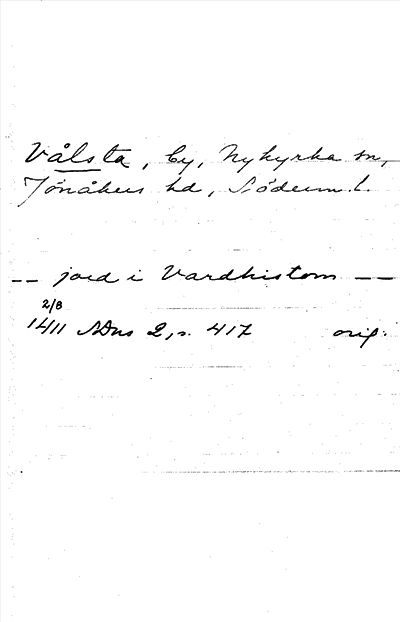 Vålsta, by, Nykyrka sn,
Jönåkers hd, Söderm.l.
-- jord i Vardhistom --
2/8
1411 SDns 2, s. 417 orig.